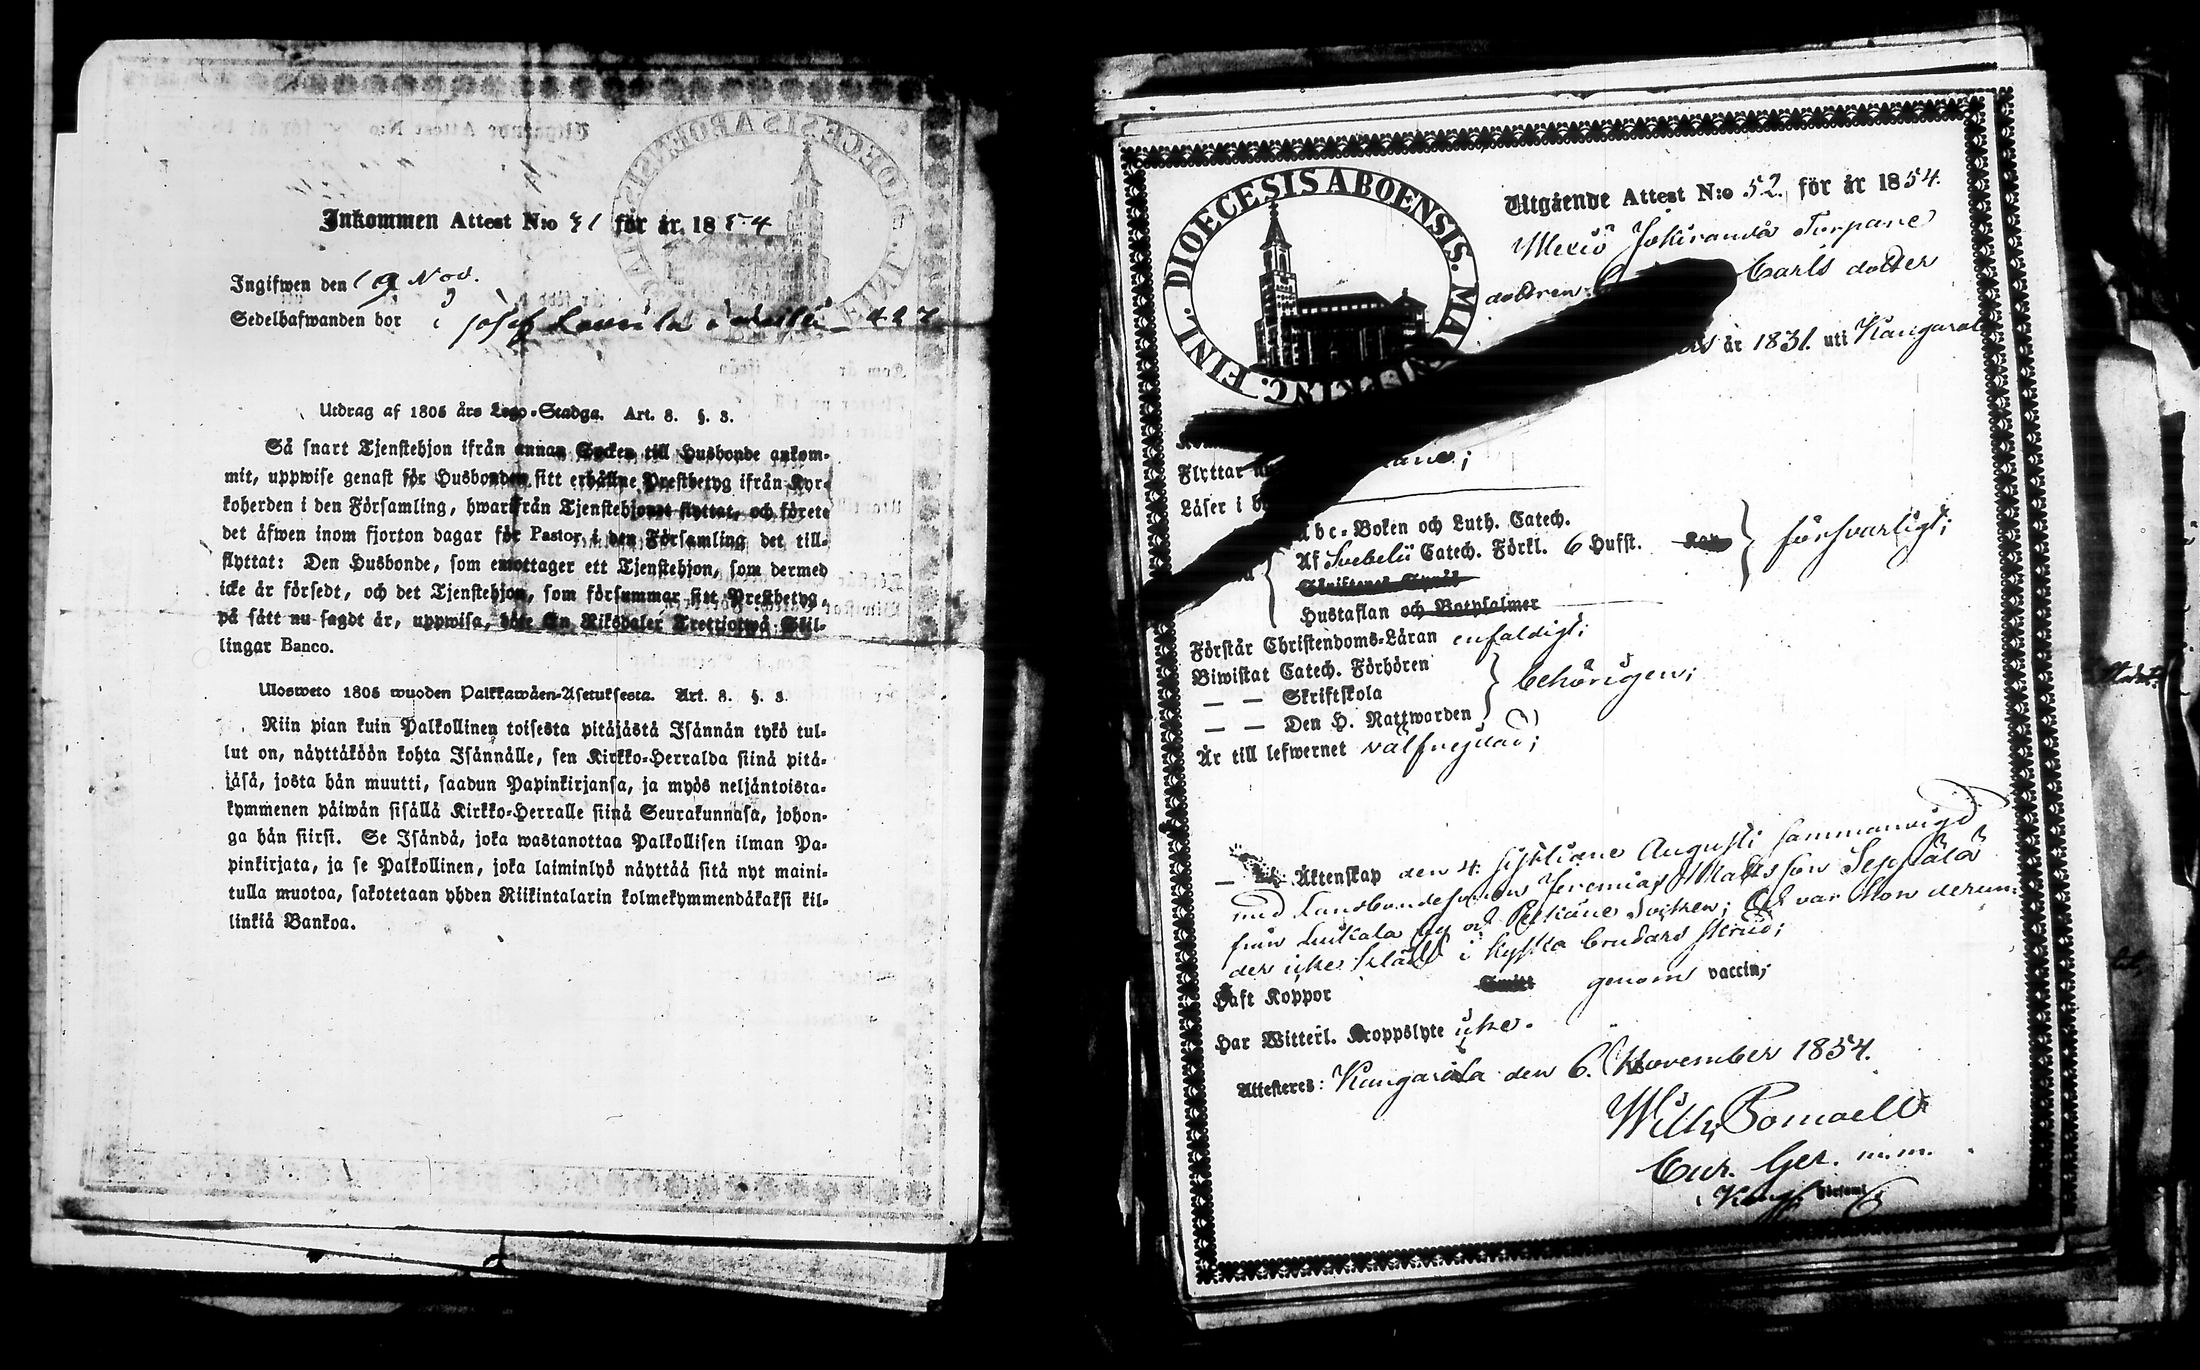 Inkommen Attest N:o 41 för år 1854
Ingifwen den 19 Nov.
Sedelhafwanden bor i Josef
Utdrag af 1805 års Lego-Stadga. Art. 8. §. 3.
Så snart Tjenstehjon ifrån annan Socken till Husbonde ankom-
mit, uppwise genast för Husbonden sitt erhållne Prestbetyg ifrån Kyr-
koherden i den Församling, hwarifrån Tjenstehjonet flyttat, och förete
det äfwen inom fjorton dagar för Pastor i den Församling det till-
flyttat: Den Husbonde, som emottager ett Tjenstehjon, som dermed
icke är försedt, och det Tjenstehjon, som försummar sitt Prestbetyg,
på sätt nu sagdt är, uppwisa, böte En Riksdaler Trettiotwå Skil-
lingar Banco.
Ulosweto 1805 wuoden Palkkawäen-Asetuksesta. Art. 8. §. 3.
Niin pian kuin Palkollinen toisesta pitäjästä Isännän tykö tul-
lut on, näyttäköön kohta Isännälle, sen Kirkko-Herralda siinä pitä-
jäsä, josta hän muutti, saadun Papinkirjansa, ja myös neljäntoista-
kymmenen päiwän sisällä Kirkko-Herralle siinä Seurakunnasa, johon-
ga hän siirsi. Se Isändä, joka wastanottaa Palkollisen ilman Pa-
pinkirjata, ja se Palkollinen, joka laiminlyö näyttää sitä nyt maini-
tulla muotoa, sakotetaan yhden Riikintalarin kolmekymmendäkaksi kil-
linkiä Bankoa.
DIOECESIS ABOENSIS. FINL.
Utgående Attest N:o 52. för år 1854.
Jokiranda Torpare
dottren Carls dotter
år 1831. uti Kangasala
Flyttar
Läser i
Abc-Boken och Luth. Catech.
Af Svebelii Catech. Förkl. 6 Hufst. Kap försvarligt;
Skriftenes Språk
Hustaflan och Botpsalmer
Förstår Christendoms-Läran enfaldigt;
Biwistat Catech. Förhören
— — Skriftskola behörigen;
— — Den H. Nattwarden
Är till lefwernet välfrejdad;
— Äktenskap den 4. sistlidne Augusti sammanvigd
med Landbondesonen Jeremias Mattsson Seppälä
från Luikala by och Pelkäne Socken; Och var hon derun-
der icke klädd i kyska brudars skrud;
Haft Koppor Smitt genom vaccin;
Har Witterl. Kroppslyte icke.
Attesteres: Kangasala den 6. November 1854.
Wilh. Pomoell
Cur. Ger. m.m.
i Församl.